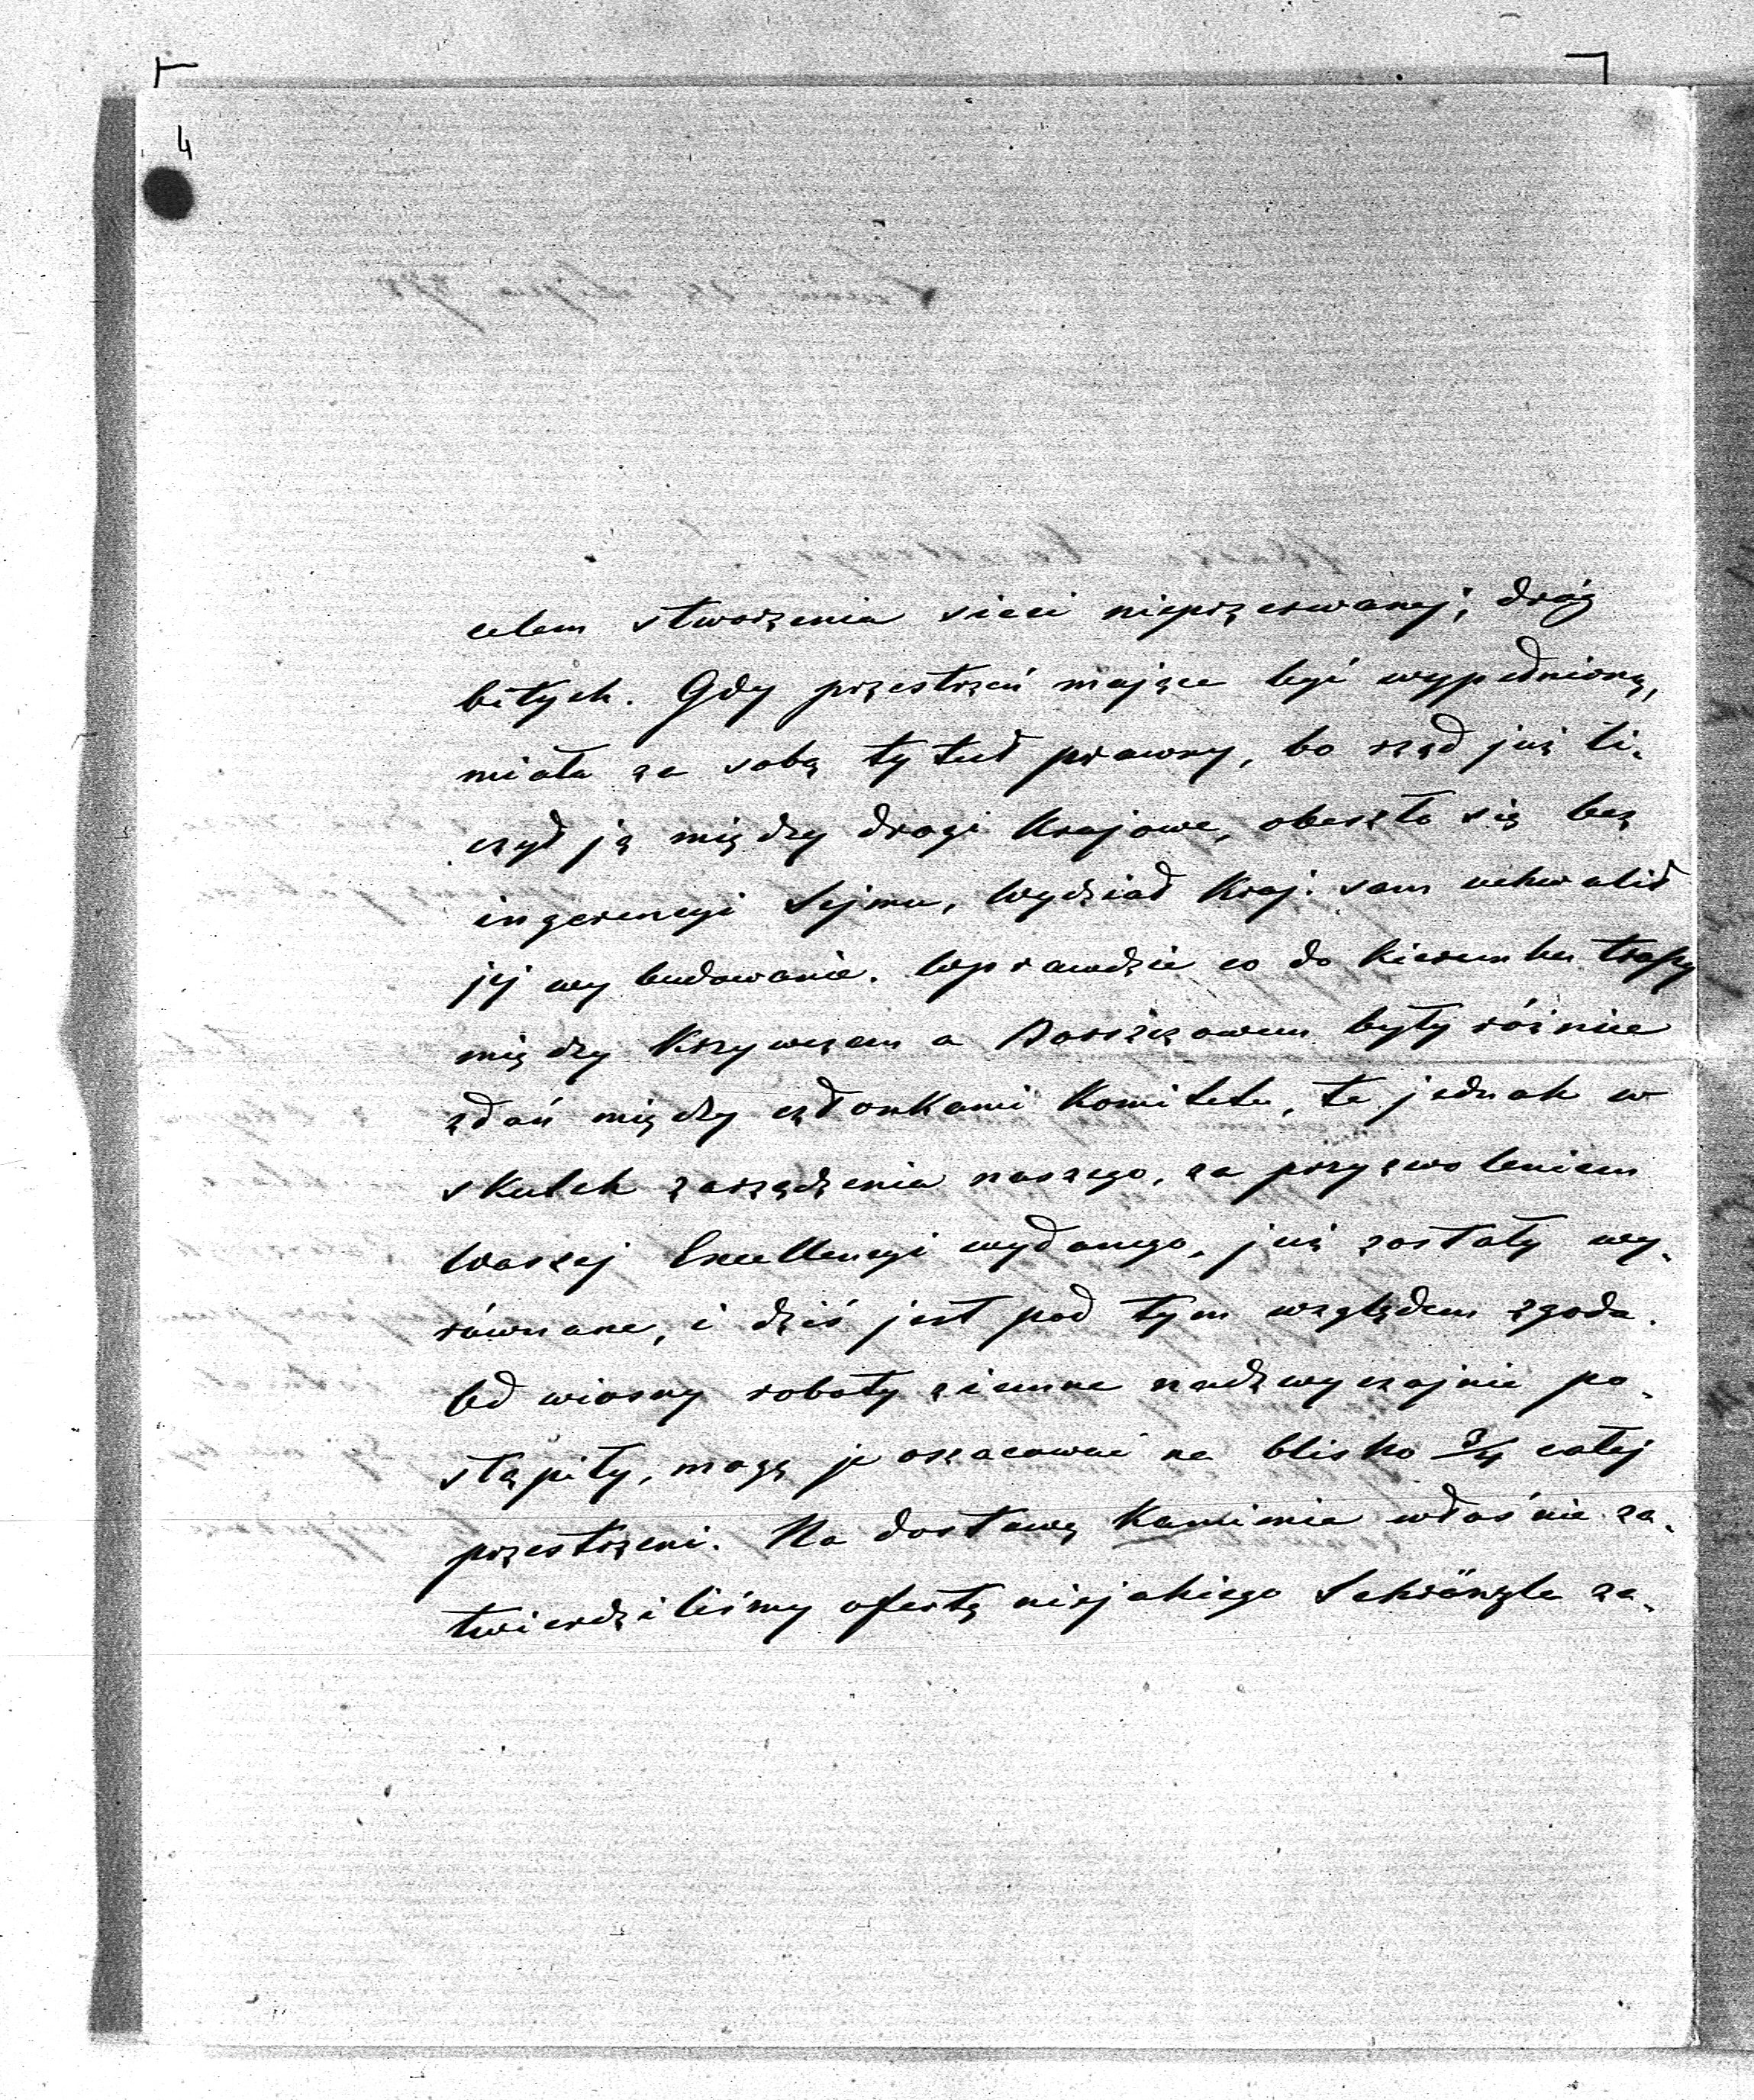 4
celem stworzenia sieci nieprzerwanej, dróg
bitych. Gdy przestrzeń mająca być wypełnioną,
miała za sobą tytuł prawny, bo rząd już li-
czył ją między drogi krajowe, obeszło się bez
ingerencyi Sejmu, Wydział Kraj. sam uchwalił
jej wybudowanie. Wprawdzie co do kierunku trasy
między Krzywczem a były różnice
zdań między członkami Komitetu, te jednak w
skutek zarządzenia naszego, za przyzwoleniem
Waszej Excellencyi wydanego, już zostały wy-
równane, i dziś jest pod tym względem zgoda.
Od wiosny roboty ziemne nadzwyczajnie po-
stąpiły, mogę je oszacować na blisko 3/4 całej
przestrzeni. Na dostawę kamienia właśnie za-
twierdziliśmy ofertę niejakiego Schränzla za-